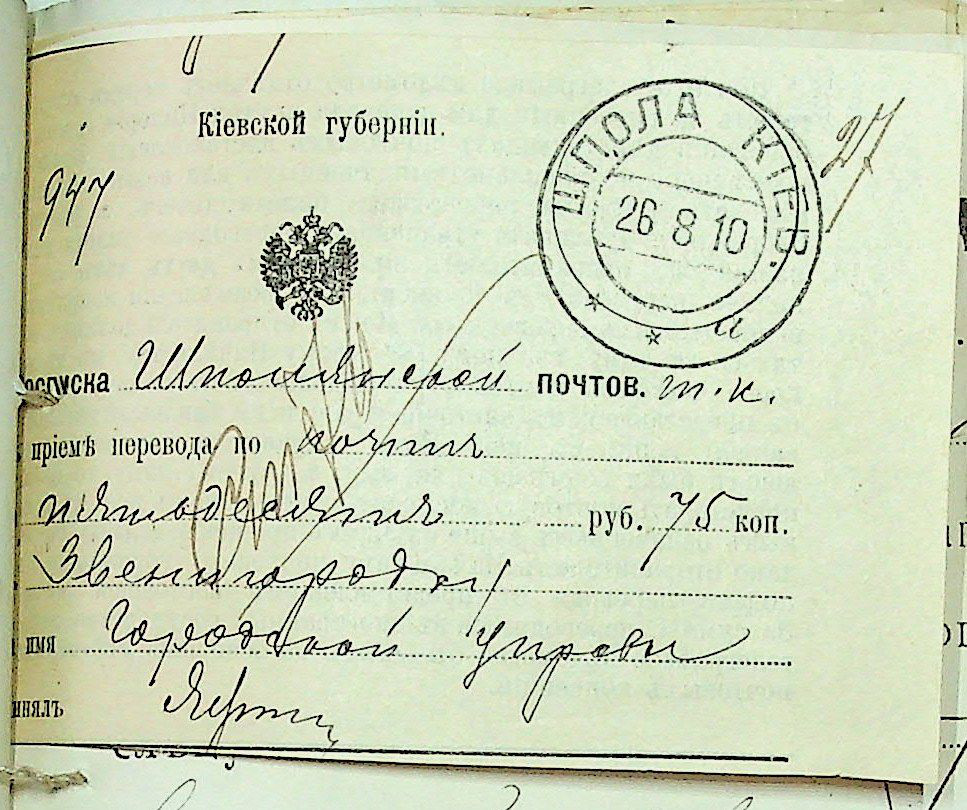 Кіевской губерніи.
ШПОЛА КІЕВ.
27
947
26 8 10
а
оспуска Шполянской почтов. т.к.
пріемѣ перевода по почтѣ
пятьдесятъ руб. 75 коп.
Звенигородку
имя Городской Управы
инялъ